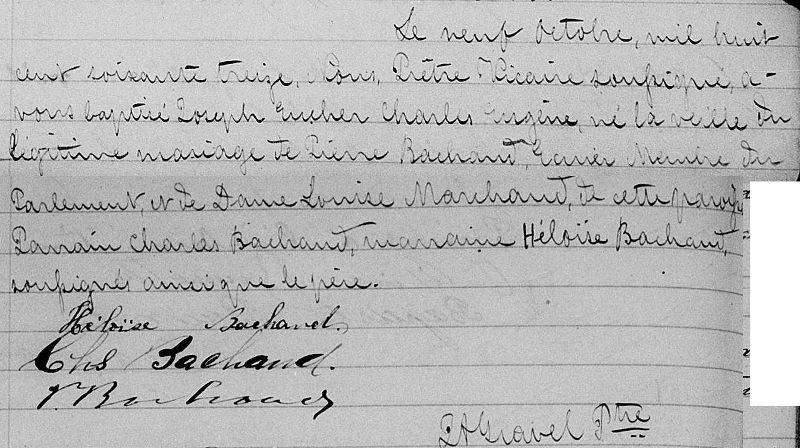 Le neuf Octobre, mil huit
cent soixante treize, Nous, Prêtre Vicaire soussigné, a-
vons baptisé Joseph Eucher Charles Eugène, né la veille du
légitime mariage de Pierre Bachand, Ecuier Membre du
Parlement, et de Dame Louise Marchand, de cette paroisse
Parrain Charles Bachand, marraine Héloïse Bachand,
soussignés ainsi que le père.
Héloïse Bachand.
Chs Bachand.
P. Bachand
Gravel Ptre